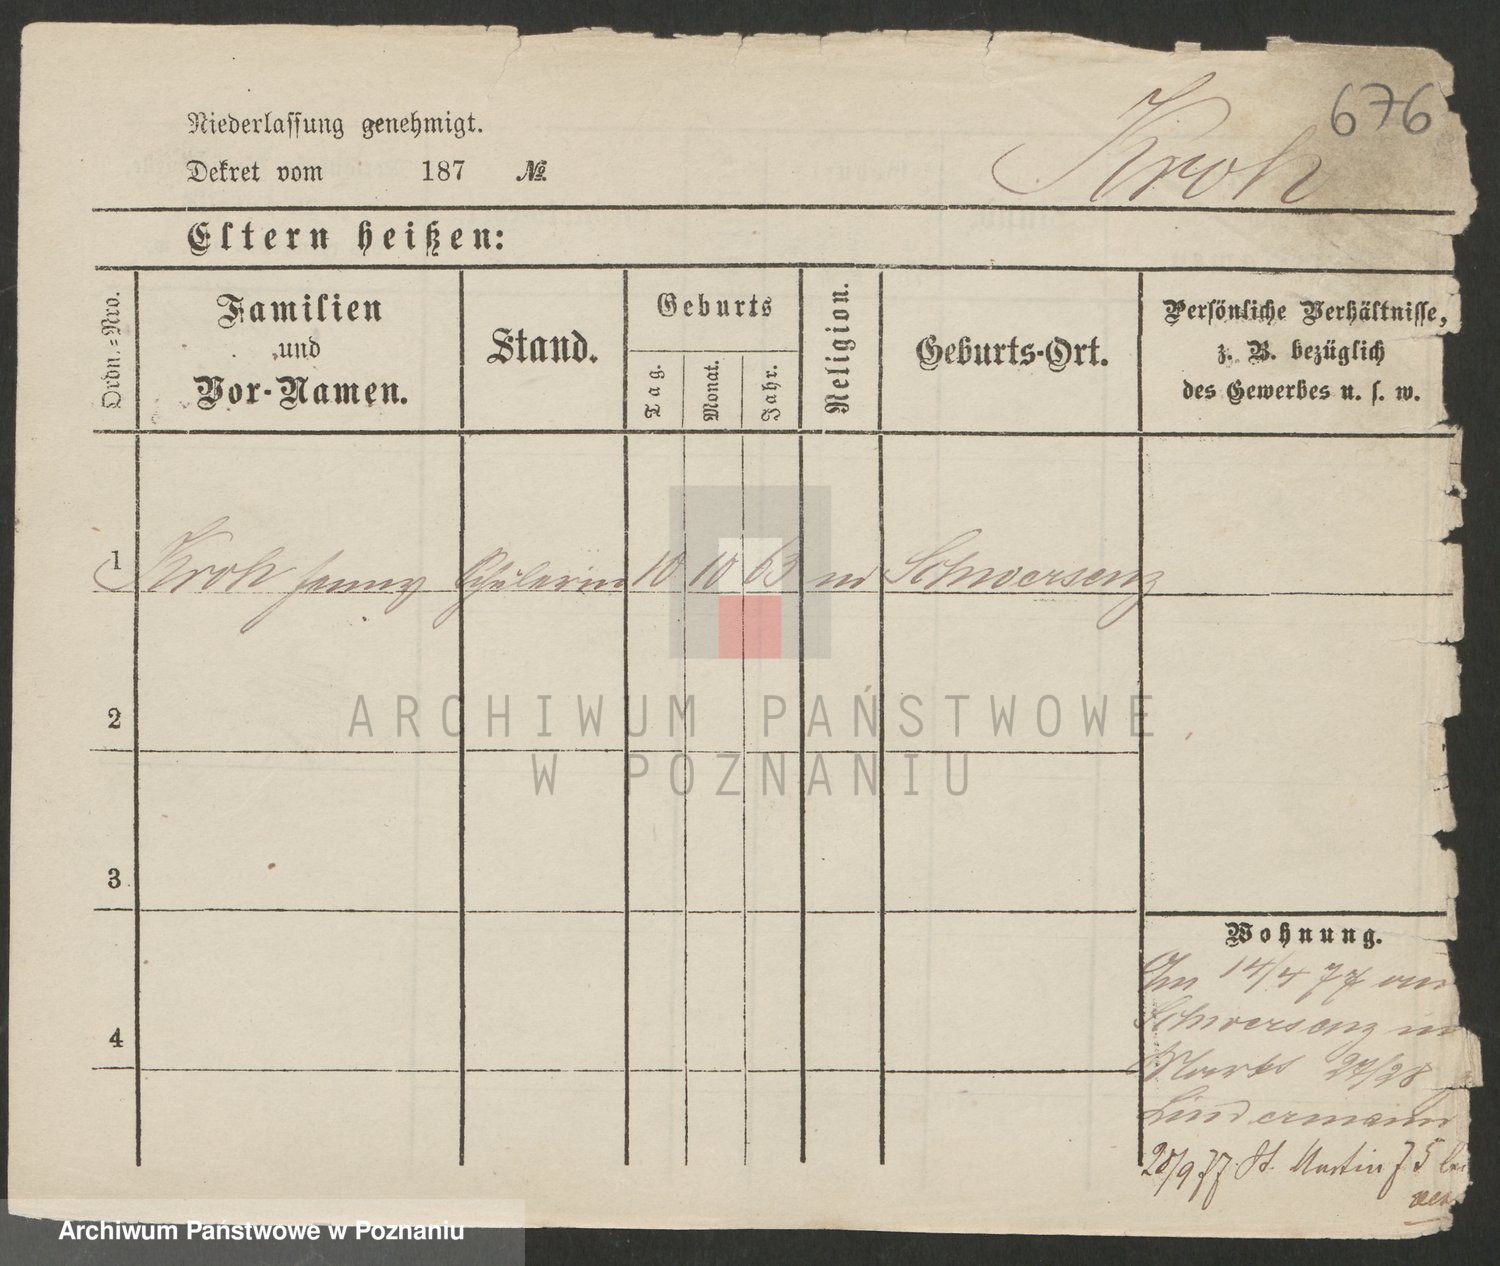 676
Kroh
Niederlassung genehmigt.
Dekret vom 187 №
Eltern heißen:
Ordn.=Nro.
Familien
und
Vor-Namen.
Stand.
Geburts
Tag.
Monat.
Jahr.
Religion.
Geburts-Ort.
Persönliche Verhältnisse,
z. B. bezüglich
des Gewerbes u. s. w.
1 Kroh Jenny Schülerin 10 10 63 Schwersenz
2
3
4
Wohnung.
14/4 77
Schwersenz
Markt 27/28
Lindermann
20/9 77. St. Martin 75
ARCHIWUM PAŃSTWOWE
W POZNANIU
Archiwum Państwowe w Poznaniu